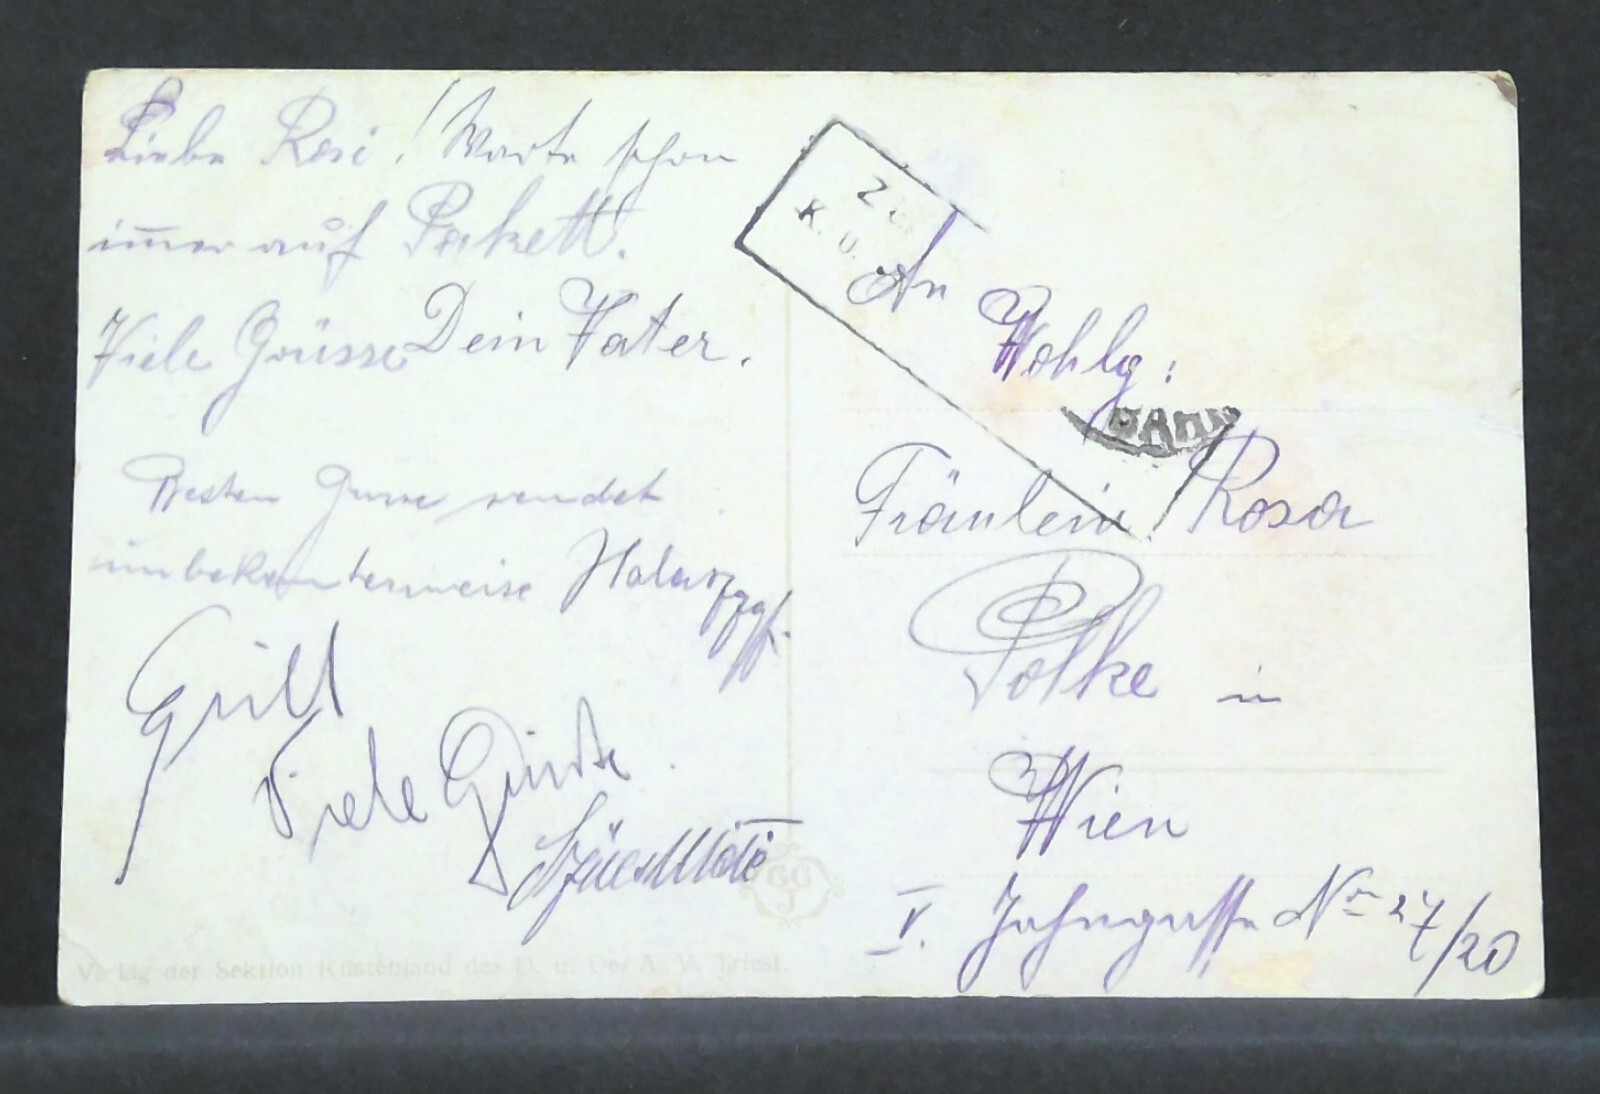 Liebe Rosi! Warte schon
immer auf Pakett.
Viele Grüsse Dein Vater.
Besten Gruss sendet
unbekannterweise
Grill
Viele Grüsse
Verlag der Sektion Küstenland des D. u. Oe. A. V. Triest.
K. u.
An
Wohlg:
Fräulein Rosa
Polke in
Wien
V. Jahngasse No 27/20